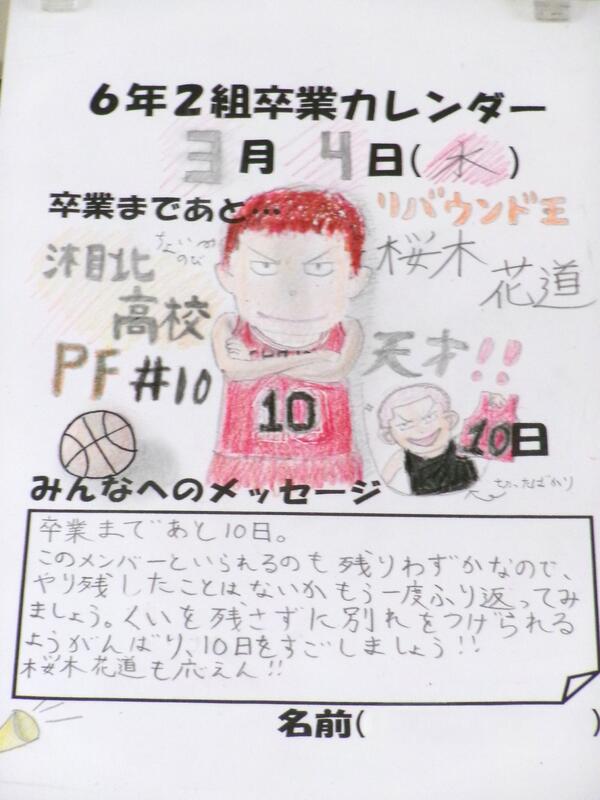 6年2組卒業カレンダー
3月4日(水)
卒業まであと…
リバウンド王
ちょいのび
桜木
花道
湘北
高校
PF #10
天才!!
10
10日
みんなへのメッセージ
卒業まであと10日。
このメンバーといられるのも残りわずかなので、
やり残したことはないかもう一度ふり返ってみ
ましょう。くいを残さずに別れをつげられる
ようがんばり、10日をすごしましょう!!
桜木花道も応えん!!
名前( )